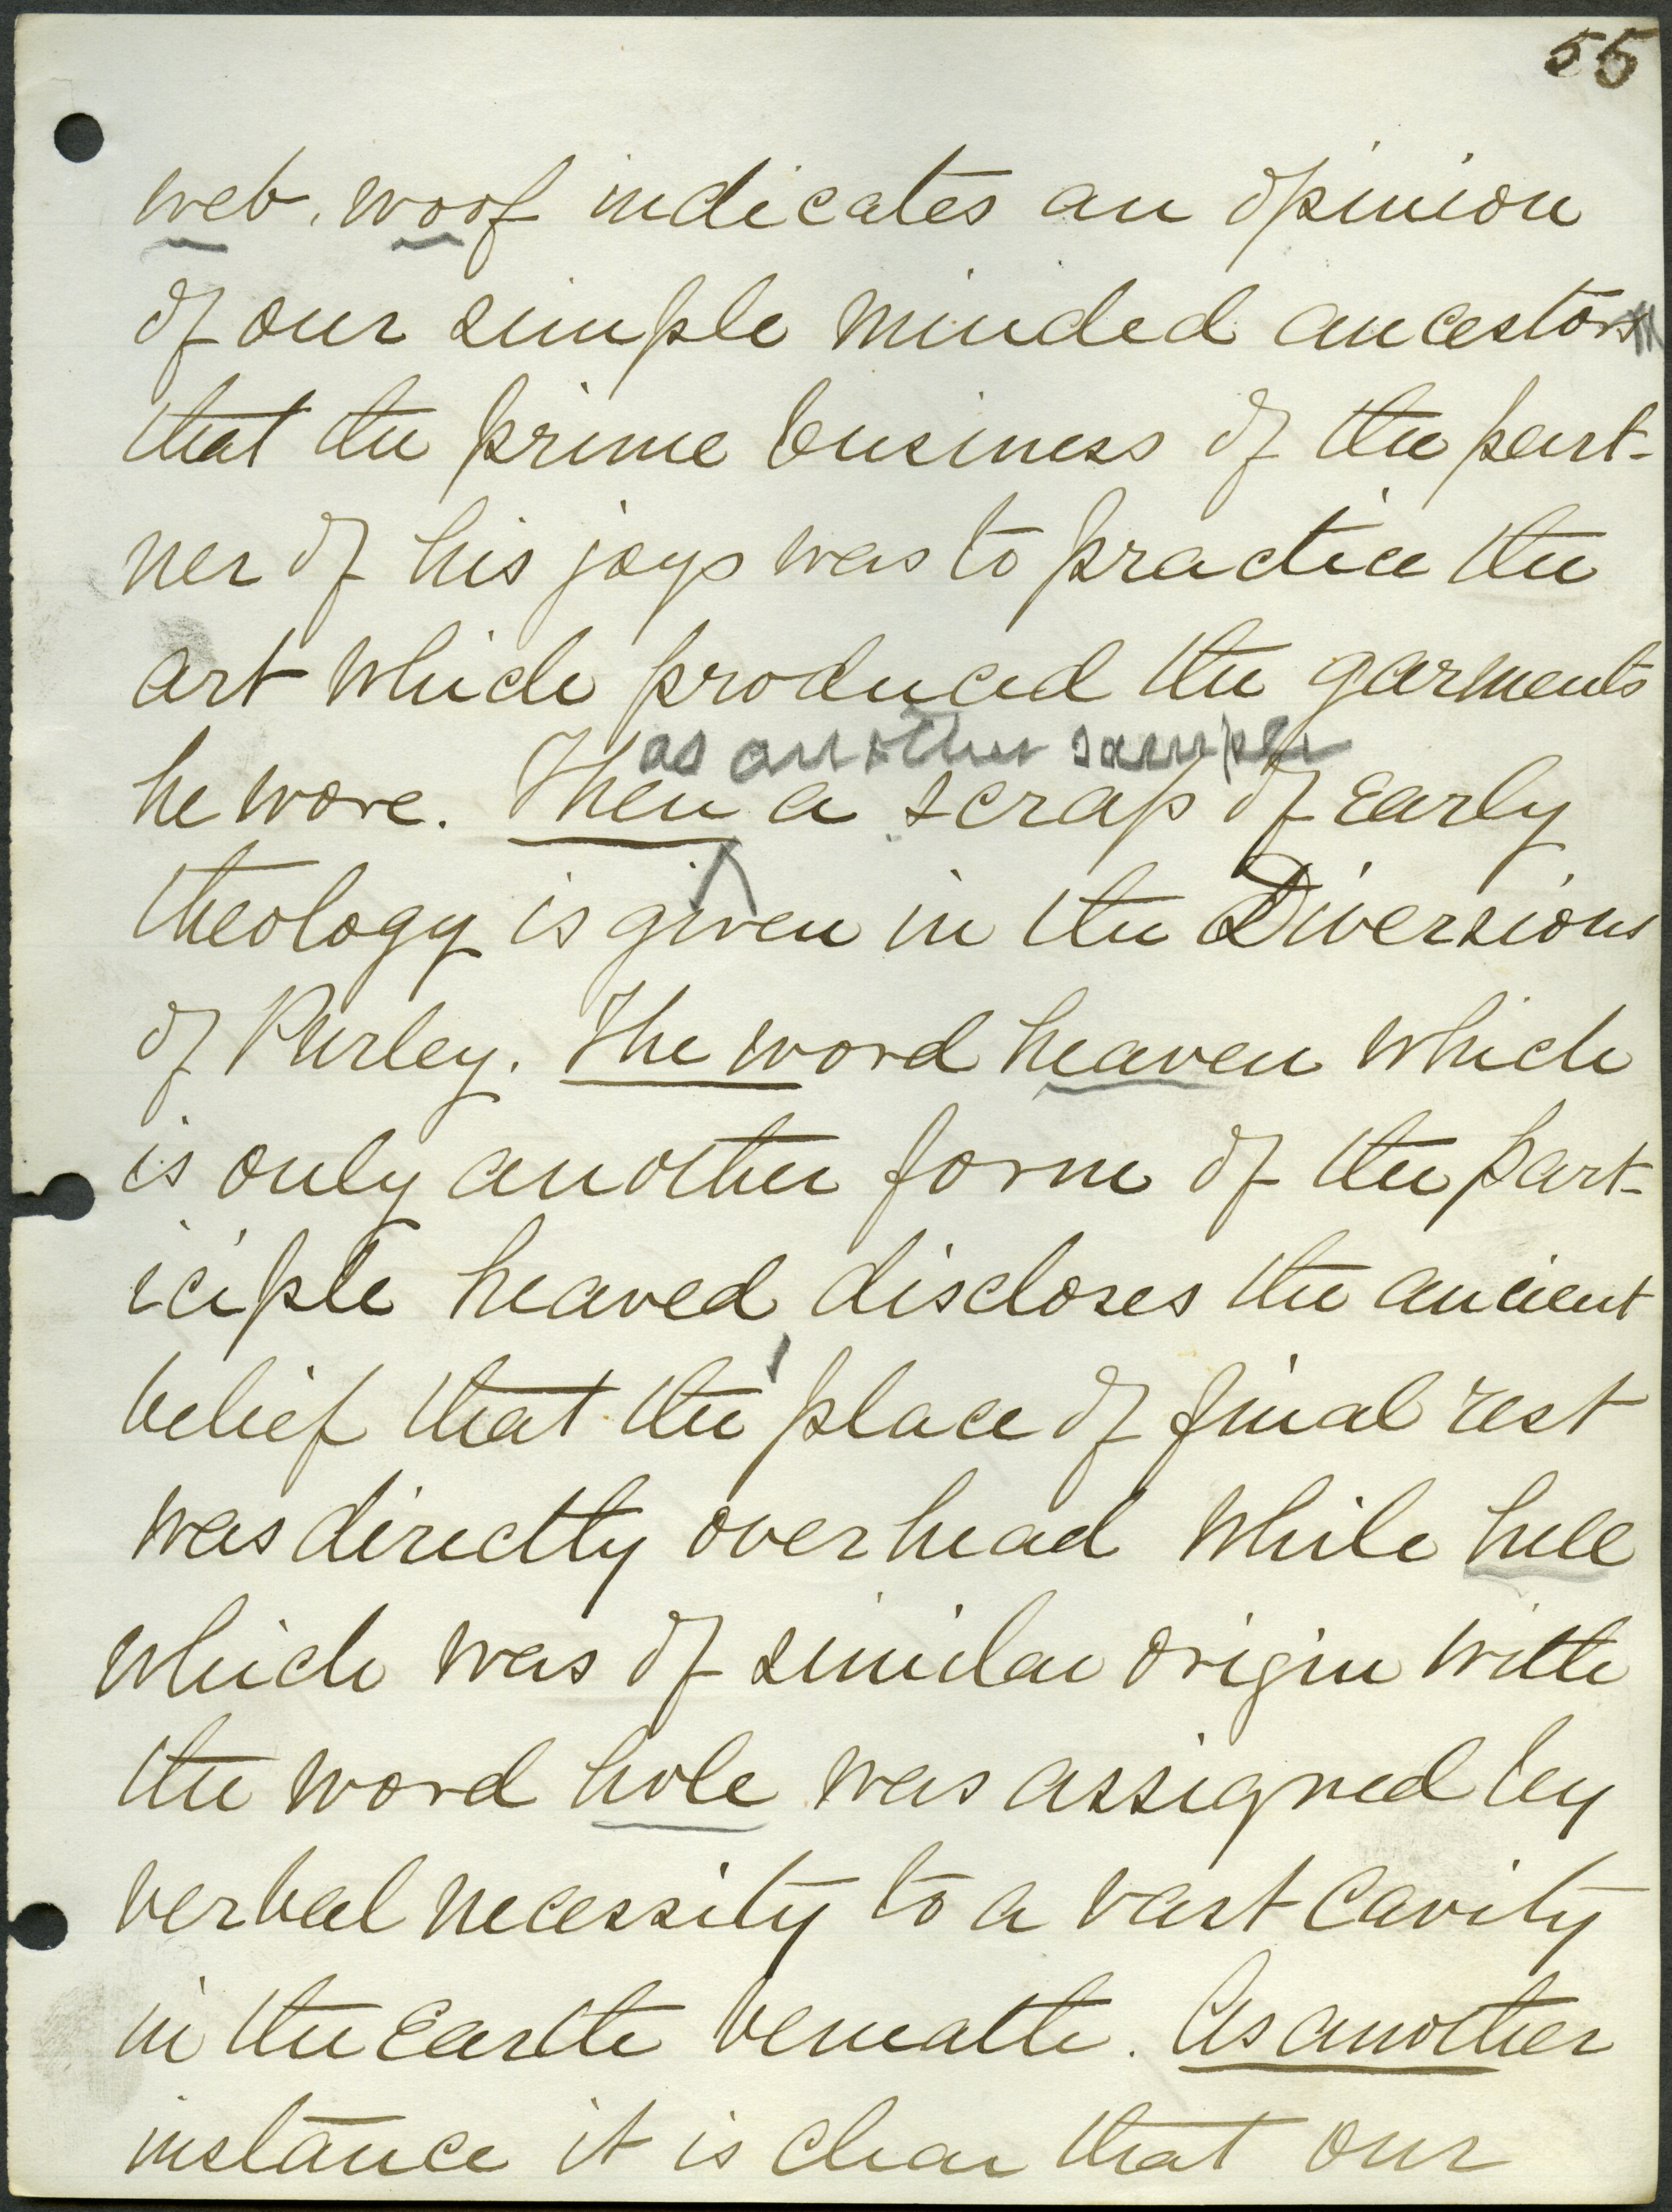 55
web, woof indicates an opinion
of our simple minded ancestor
that the prime business of the part-
ner of his joys was to practice the
art which produced the garments
as another sample
he wore. Then a scrap of early
theology is given in the Diversions
of Purley. The word heaven which
is only another form of the part-
iciple heaved, discloses the ancient
belief that the place of final rest
was directly overhead while hell
which was of similar origin with
the word hole was assigned by
verbal necessity to a vast cavity
in the Earth beneath. As another
instance it is clear that our